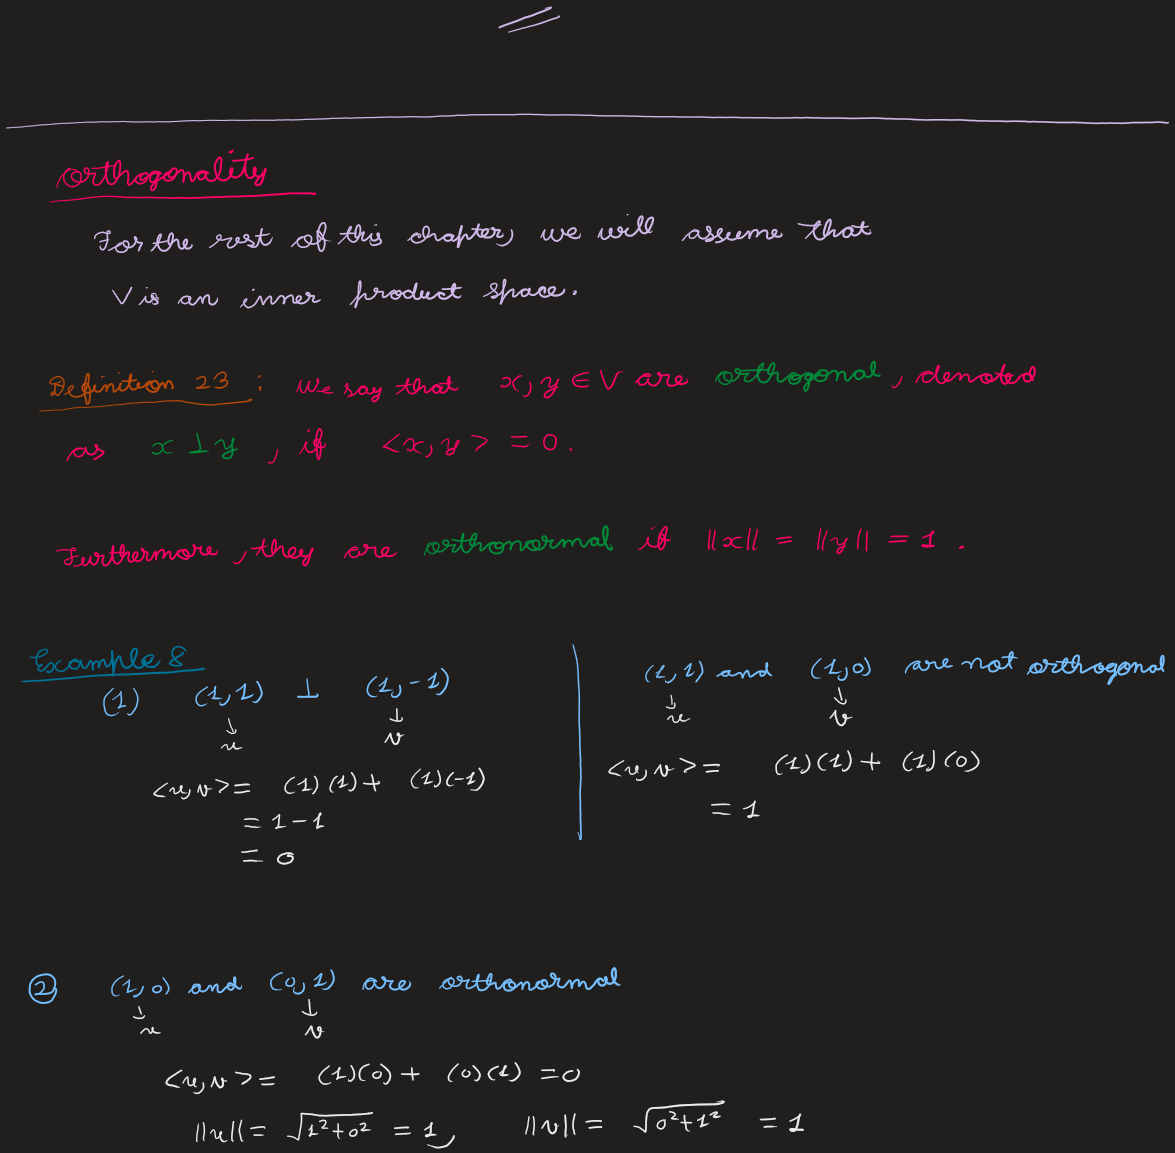 Orthogonality
For the rest of this chapter, we will assume that
V is an inner product space.
Definition 23 : We say that x, y ∈ V are orthogonal, denoted
as x ⊥ y , if <x, y> = 0.
Furthermore, they are orthonormal if ||x|| = ||y|| = 1 .
Example 8
(1) (1,1) ⊥ (1,-1)
↓ ↓
u v
<u,v> = (1)(1) + (1)(-1)
= 1-1
= 0
(1,1) and (1,0) are not orthogonal
↓ ↓
u v
<u,v> = (1)(1) + (1)(0)
= 1
② (1,0) and (0,1) are orthonormal
↓ ↓
u v
<u,v> = (1)(0) + (0)(1) = 0
||u|| = √1²+0² = 1, ||v|| = √0²+1² = 1